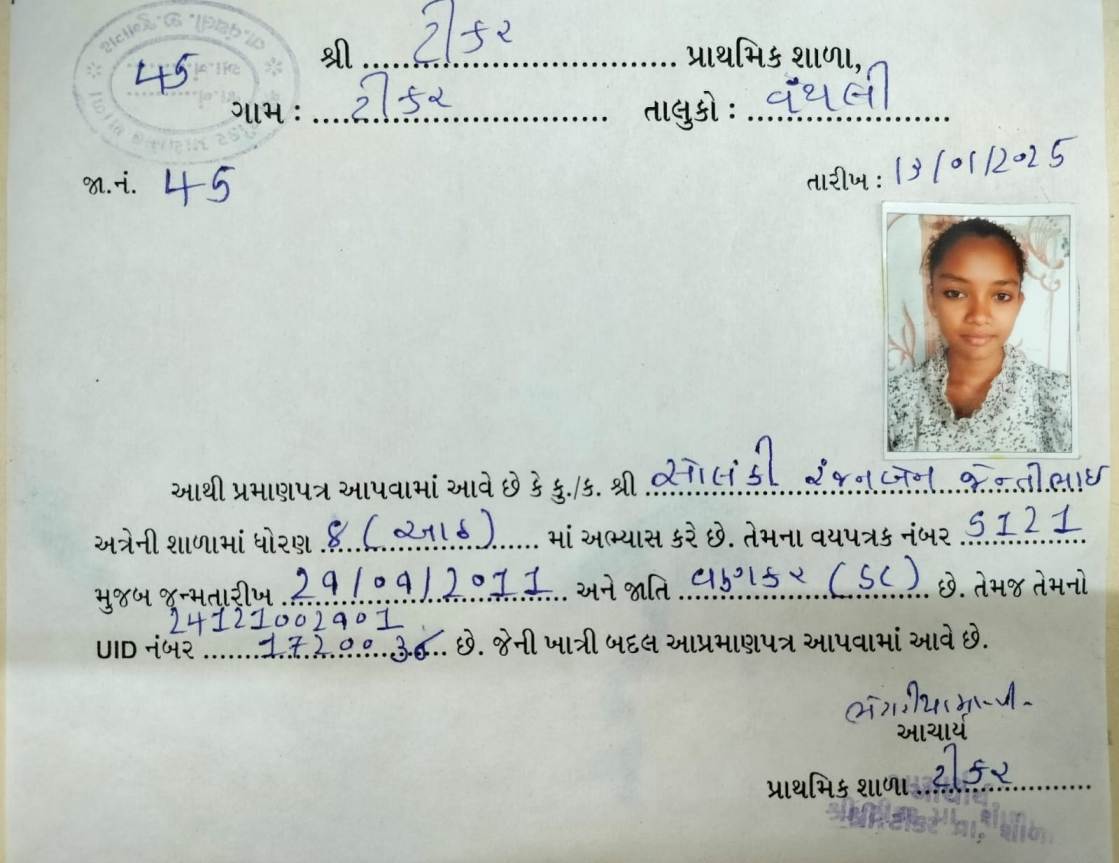 45
શ્રી ટીકર પ્રાથમિક શાળા,
ગામ : ટીકર તાલુકો : વંથલી
જા.નં. 45 તારીખ : 13/01/2025
આથી પ્રમાણપત્ર આપવામાં આવે છે કે કુ./ક. શ્રી સોલંકી રંજનબેન જેન્તીભાઈ
અત્રેની શાળામાં ધોરણ 8 (આઠ) માં અભ્યાસ કરે છે. તેમના વયપત્રક નંબર 5121
મુજબ જન્મતારીખ 29/09/2011 અને જાતિ વણકર (SC) છે. તેમજ તેમનો
24121002901
UID નંબર 1720036 છે. જેની ખાત્રી બદલ આપ્રમાણપત્ર આપવામાં આવે છે.
આચાર્ય
પ્રાથમિક શાળા ટીકર